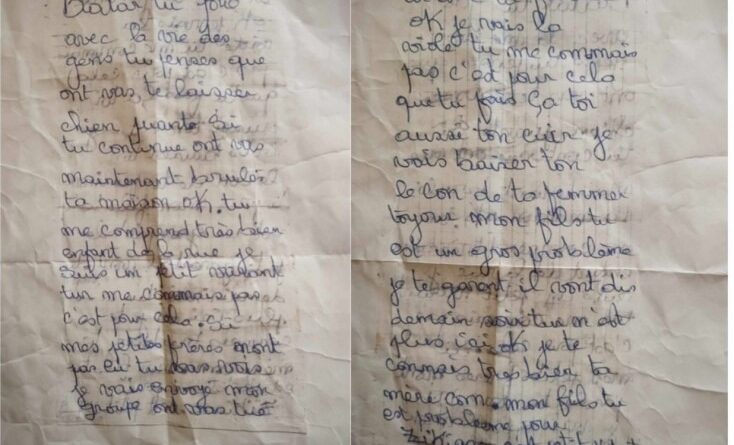 Batar tu joue
avec la vie des
gens tu penses que
ont vas te laisser
chien juante si
tu continue ont vas
maintenant brulér
ta maison ok. tu
me comprend très bien
enfant de la rue je
suis un petit
tu me connais pas
c'est pour cela. Si
mes petites frères mont
pas eu tu vas vois
je vais envoyé mon
groupe ont vas tué
ok je vais la
viole tu me connais
pas c'est pour cela
que tu fais Ça toi
aussi ton je
vais baiser ton
le con de ta femme
toyour mon fils tu
est un gros problème
je te garant il vont dis
demain tu n'est
plus ici ok je te
connais très bien ta
mère mon fils tu
est problème pour